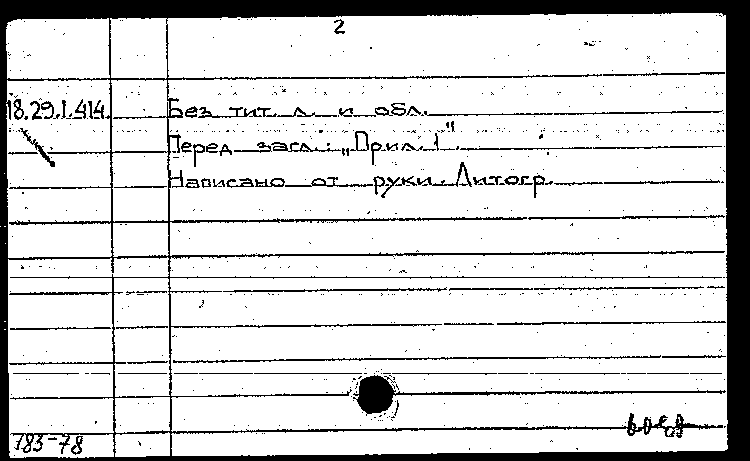 2
18.29.1.414 Без тит. л. и обл.
Перед загл.: „Прил. 1".
Написано от руки. Литогр.
783-78